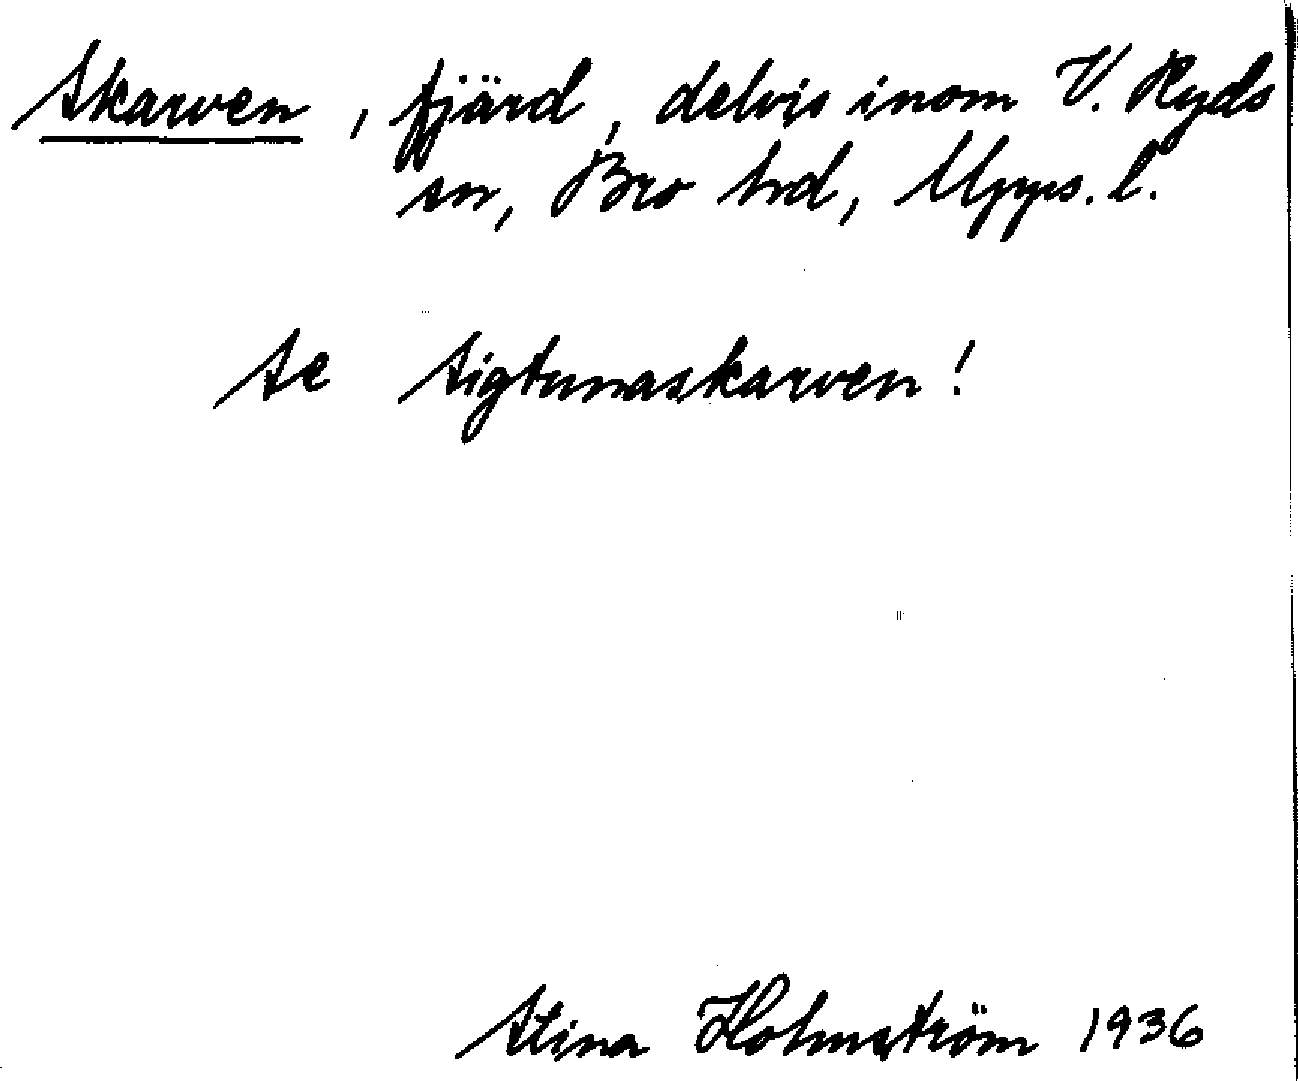 Skarven, fjärd, delvis inom V. Ryds
sn, Bro hd, Upps. l.
Se Sigtunaskarven!
Stina Holmström 1936